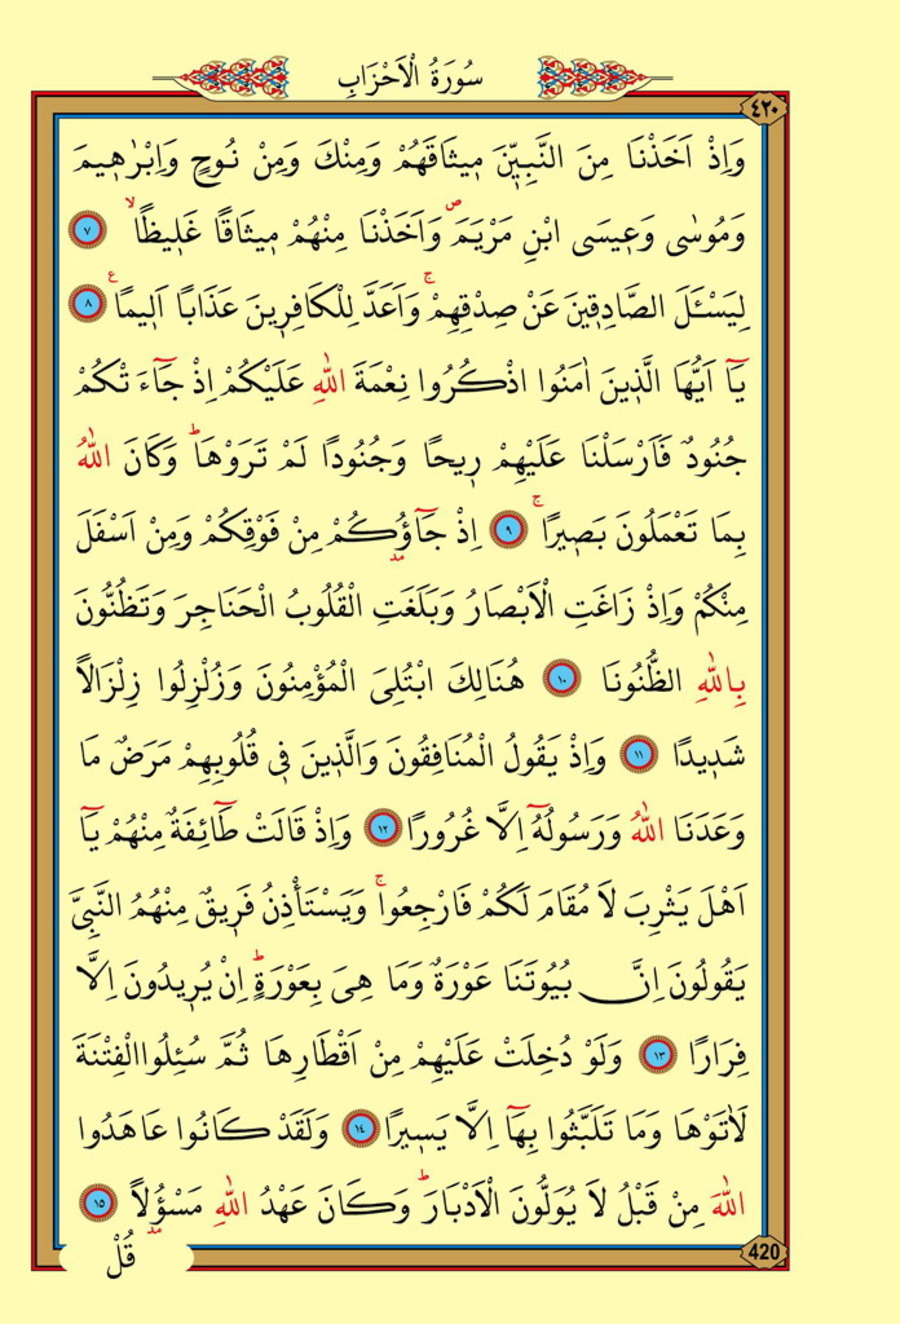 سُورَةُ الْاَحْزَابِ
٤٢٠
وَاِذْ اَخَذْنَا مِنَ النَّبِيّٖنَ مٖيثَاقَهُمْ وَمِنْكَ وَمِنْ نُوحٍ وَاِبْرٰهٖيمَ
وَمُوسٰى وَعٖيسَى ابْنِ مَرْيَمَ ص وَاَخَذْنَا مِنْهُمْ مٖيثَاقًا غَلٖيظًا ۙ ٧
لِيَسْـَٔلَ الصَّادِقٖينَ عَنْ صِدْقِهِمْ ۚ وَاَعَدَّ لِلْكَافِرٖينَ عَذَابًا اَلٖيمًا ع ٨
يَٓا اَيُّهَا الَّذٖينَ اٰمَنُوا اذْكُرُوا نِعْمَةَ اللّٰهِ عَلَيْكُمْ اِذْ جَٓاءَ تْكُمْ
جُنُودٌ فَاَرْسَلْنَا عَلَيْهِمْ رٖيحًا وَجُنُودًا لَمْ تَرَوْهَا ؕ وَكَانَ اللّٰهُ
بِمَا تَعْمَلُونَ بَصٖيرًا ۚ ٩ اِذْ جَٓاؤُ۫كُمْ مِنْ فَوْقِكُمْ وَمِنْ اَسْفَلَ
مِنْكُمْ وَاِذْ زَاغَتِ الْاَبْصَارُ وَبَلَغَتِ الْقُلُوبُ الْحَنَاجِرَ وَتَظُنُّونَ
بِاللّٰهِ الظُّنُونَا ١٠ هُنَالِكَ ابْتُلِىَ الْمُؤْمِنُونَ وَزُلْزِلُوا زِلْزَالًا
شَدٖيدًا ١١ وَاِذْ يَقُولُ الْمُنَافِقُونَ وَالَّذٖينَ فٖى قُلُوبِهِمْ مَرَضٌ مَا
وَعَدَنَا اللّٰهُ وَرَسُولُهُٓ اِلَّا غُرُورًا ١٢ وَاِذْ قَالَتْ طَٓائِفَةٌ مِنْهُمْ يَٓا
اَهْلَ يَثْرِبَ لَا مُقَامَ لَكُمْ فَارْجِعُوا ۚ وَيَسْتَأْذِنُ فَرٖيقٌ مِنْهُمُ النَّبِىَّ
يَقُولُونَ اِنَّ بُيُوتَنَا عَوْرَةٌ وَمَا هِىَ بِعَوْرَةٍ ؕ اِنْ يُرٖيدُونَ اِلَّا
فِرَارًا ١٣ وَلَوْ دُخِلَتْ عَلَيْهِمْ مِنْ اَقْطَارِهَا ثُمَّ سُئِلُوا الْفِتْنَةَ
لَاٰتَوْهَا وَمَا تَلَبَّثُوا بِهَٓا اِلَّا يَسٖيرًا ١٤ وَلَقَدْ كَانُوا عَاهَدُوا
اللّٰهَ مِنْ قَبْلُ لَا يُوَلُّونَ الْاَدْبَارَ ؕ وَكَانَ عَهْدُ اللّٰهِ مَسْؤُ۫لًا ١٥
420
قُلْ